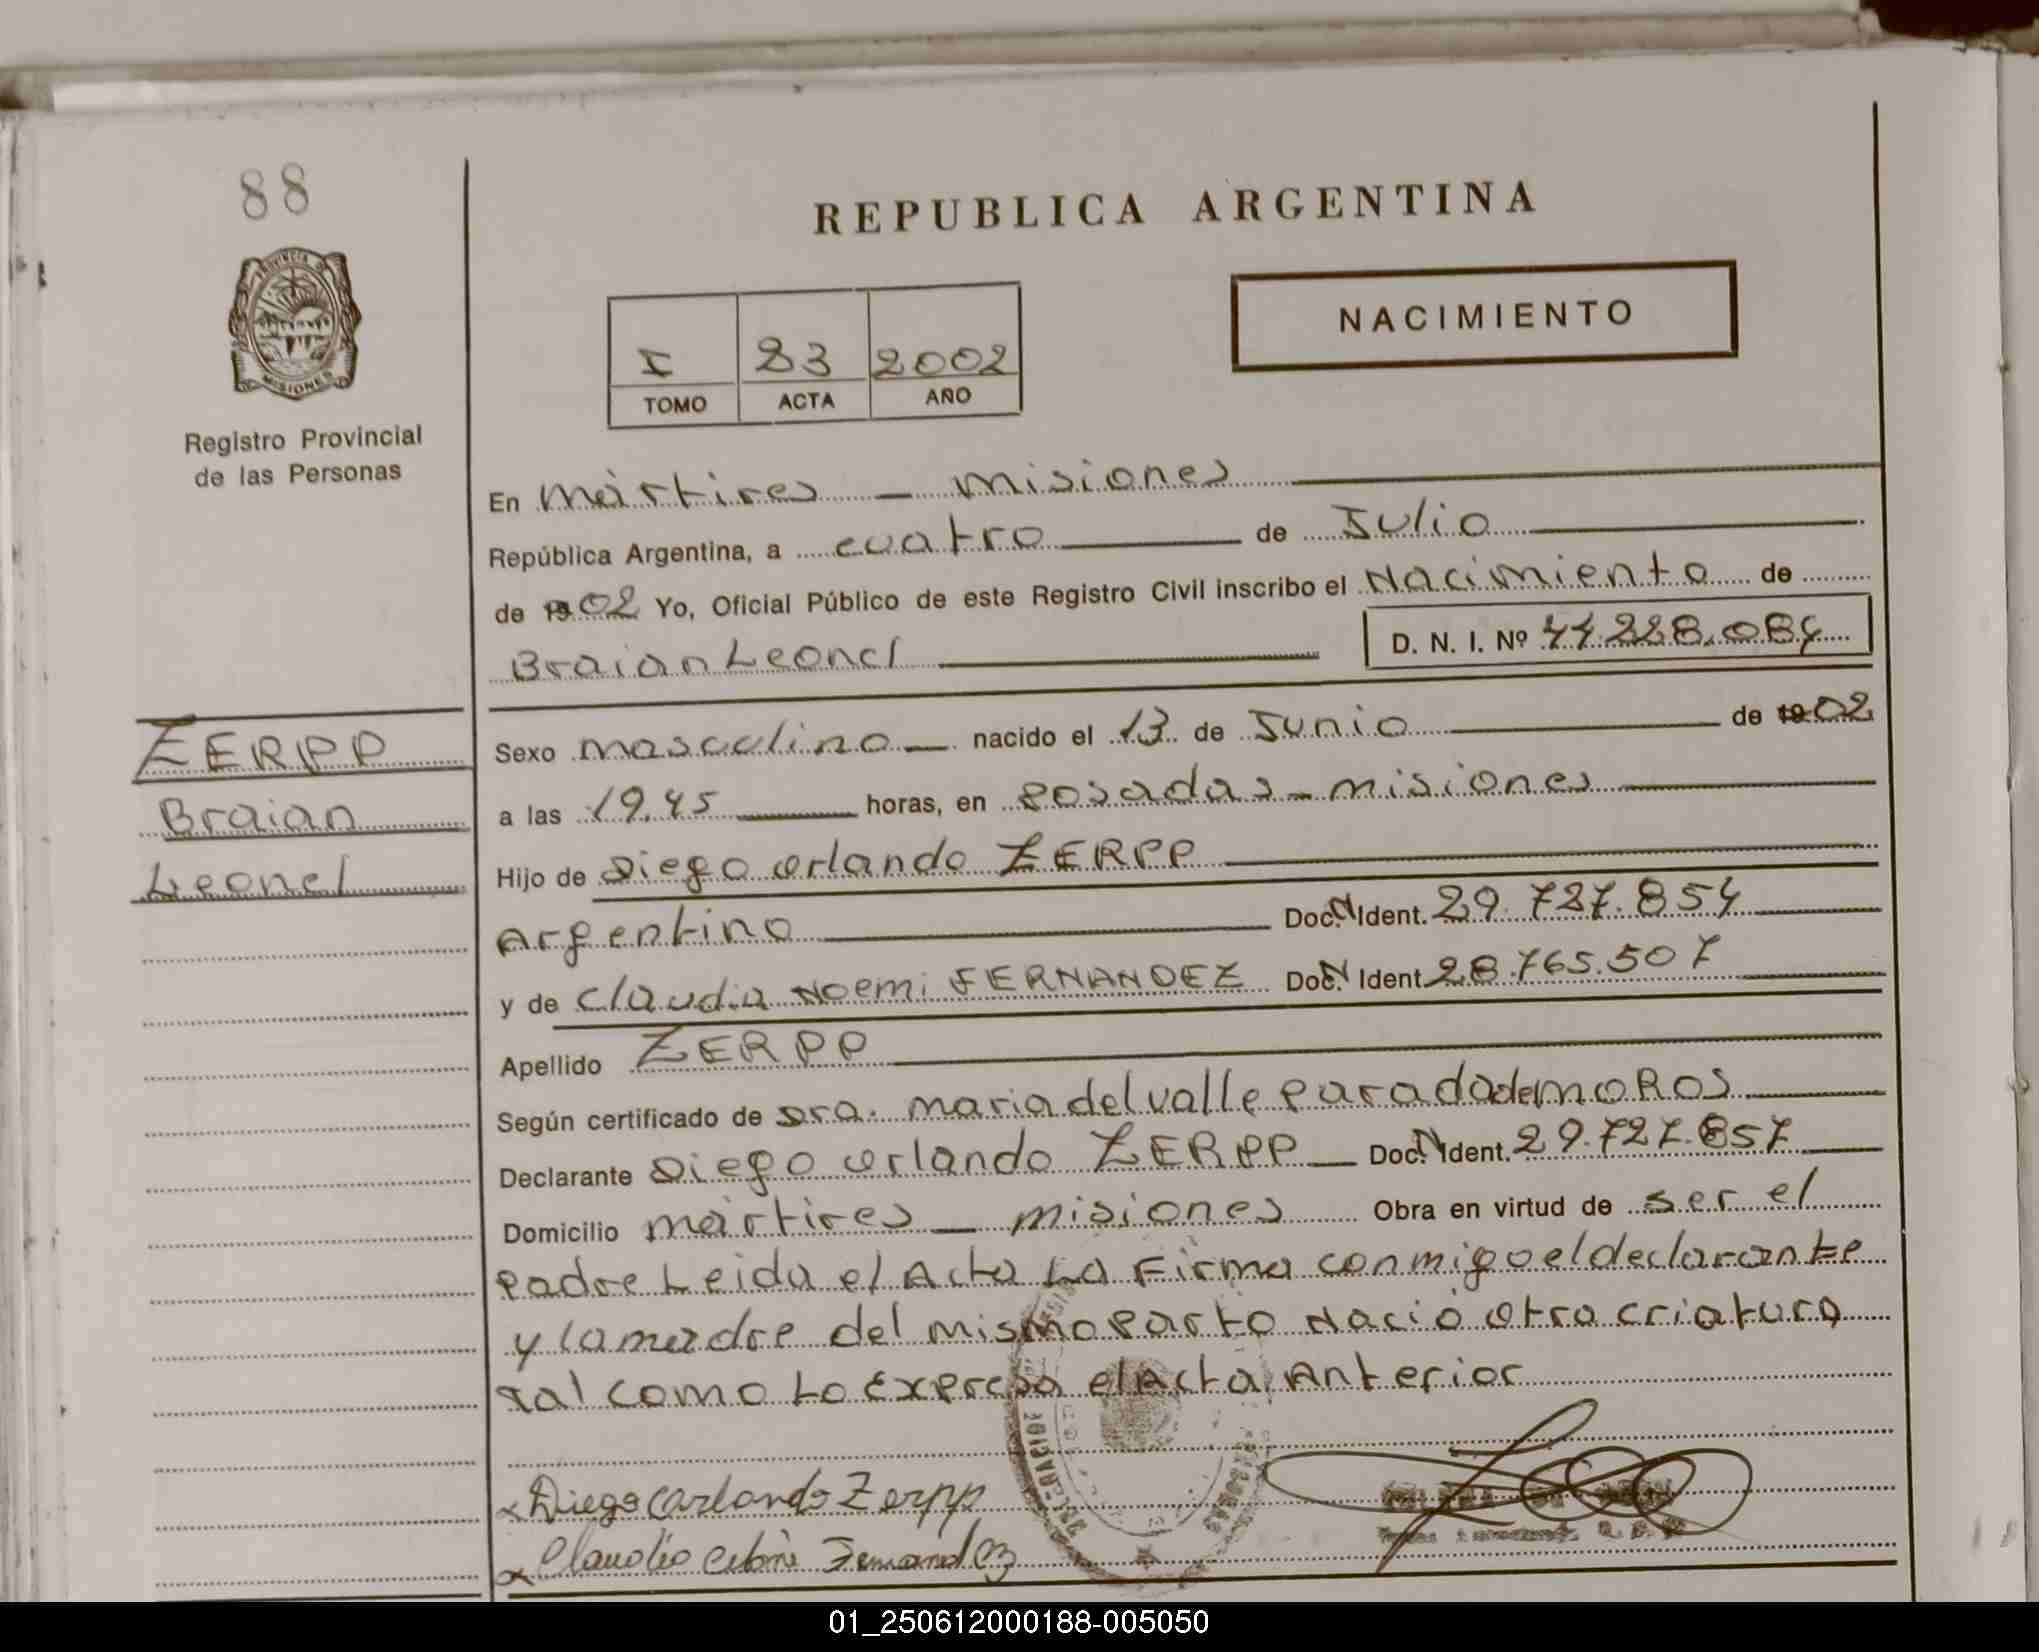 88
PROVINCIA DE
MISIONES
Registro Provincial
de las Personas
REPUBLICA ARGENTINA
NACIMIENTO
I 83 2002
TOMO ACTA AÑO
En Mártires — Misiones
República Argentina, a cuatro de Julio
de 02 Yo, Oficial Público de este Registro Civil inscribo el Nacimiento de
Braian Leonel D. N. I. Nº 44.228.084
ZERPP
Braian
Leonel
Sexo masculino — nacido el 13 de Junio de 1902
a las 19,45 horas, en Posadas – misiones
Hijo de Diego Orlando ZERPP
Argentino Doc. N Ident. 29.727.854
y de Claudia Noemi FERNANDEZ Doc. N Ident. 28.765.507
Apellido ZERPP
Según certificado de Dra. Maria del Valle Parada de MOROS
Declarante Diego Orlando ZERPP — Doc. N Ident. 29.727.857
Domicilio Mártires — misiones Obra en virtud de ser el
Padre Leida el Acta La Firma conmigo el declarante
y la madre del mismo Parto Nació otra criatura
tal como lo Expresa el Acta Anterior
x Diego Orlando Zerpp
x Fernandez
01_250612000188-005050